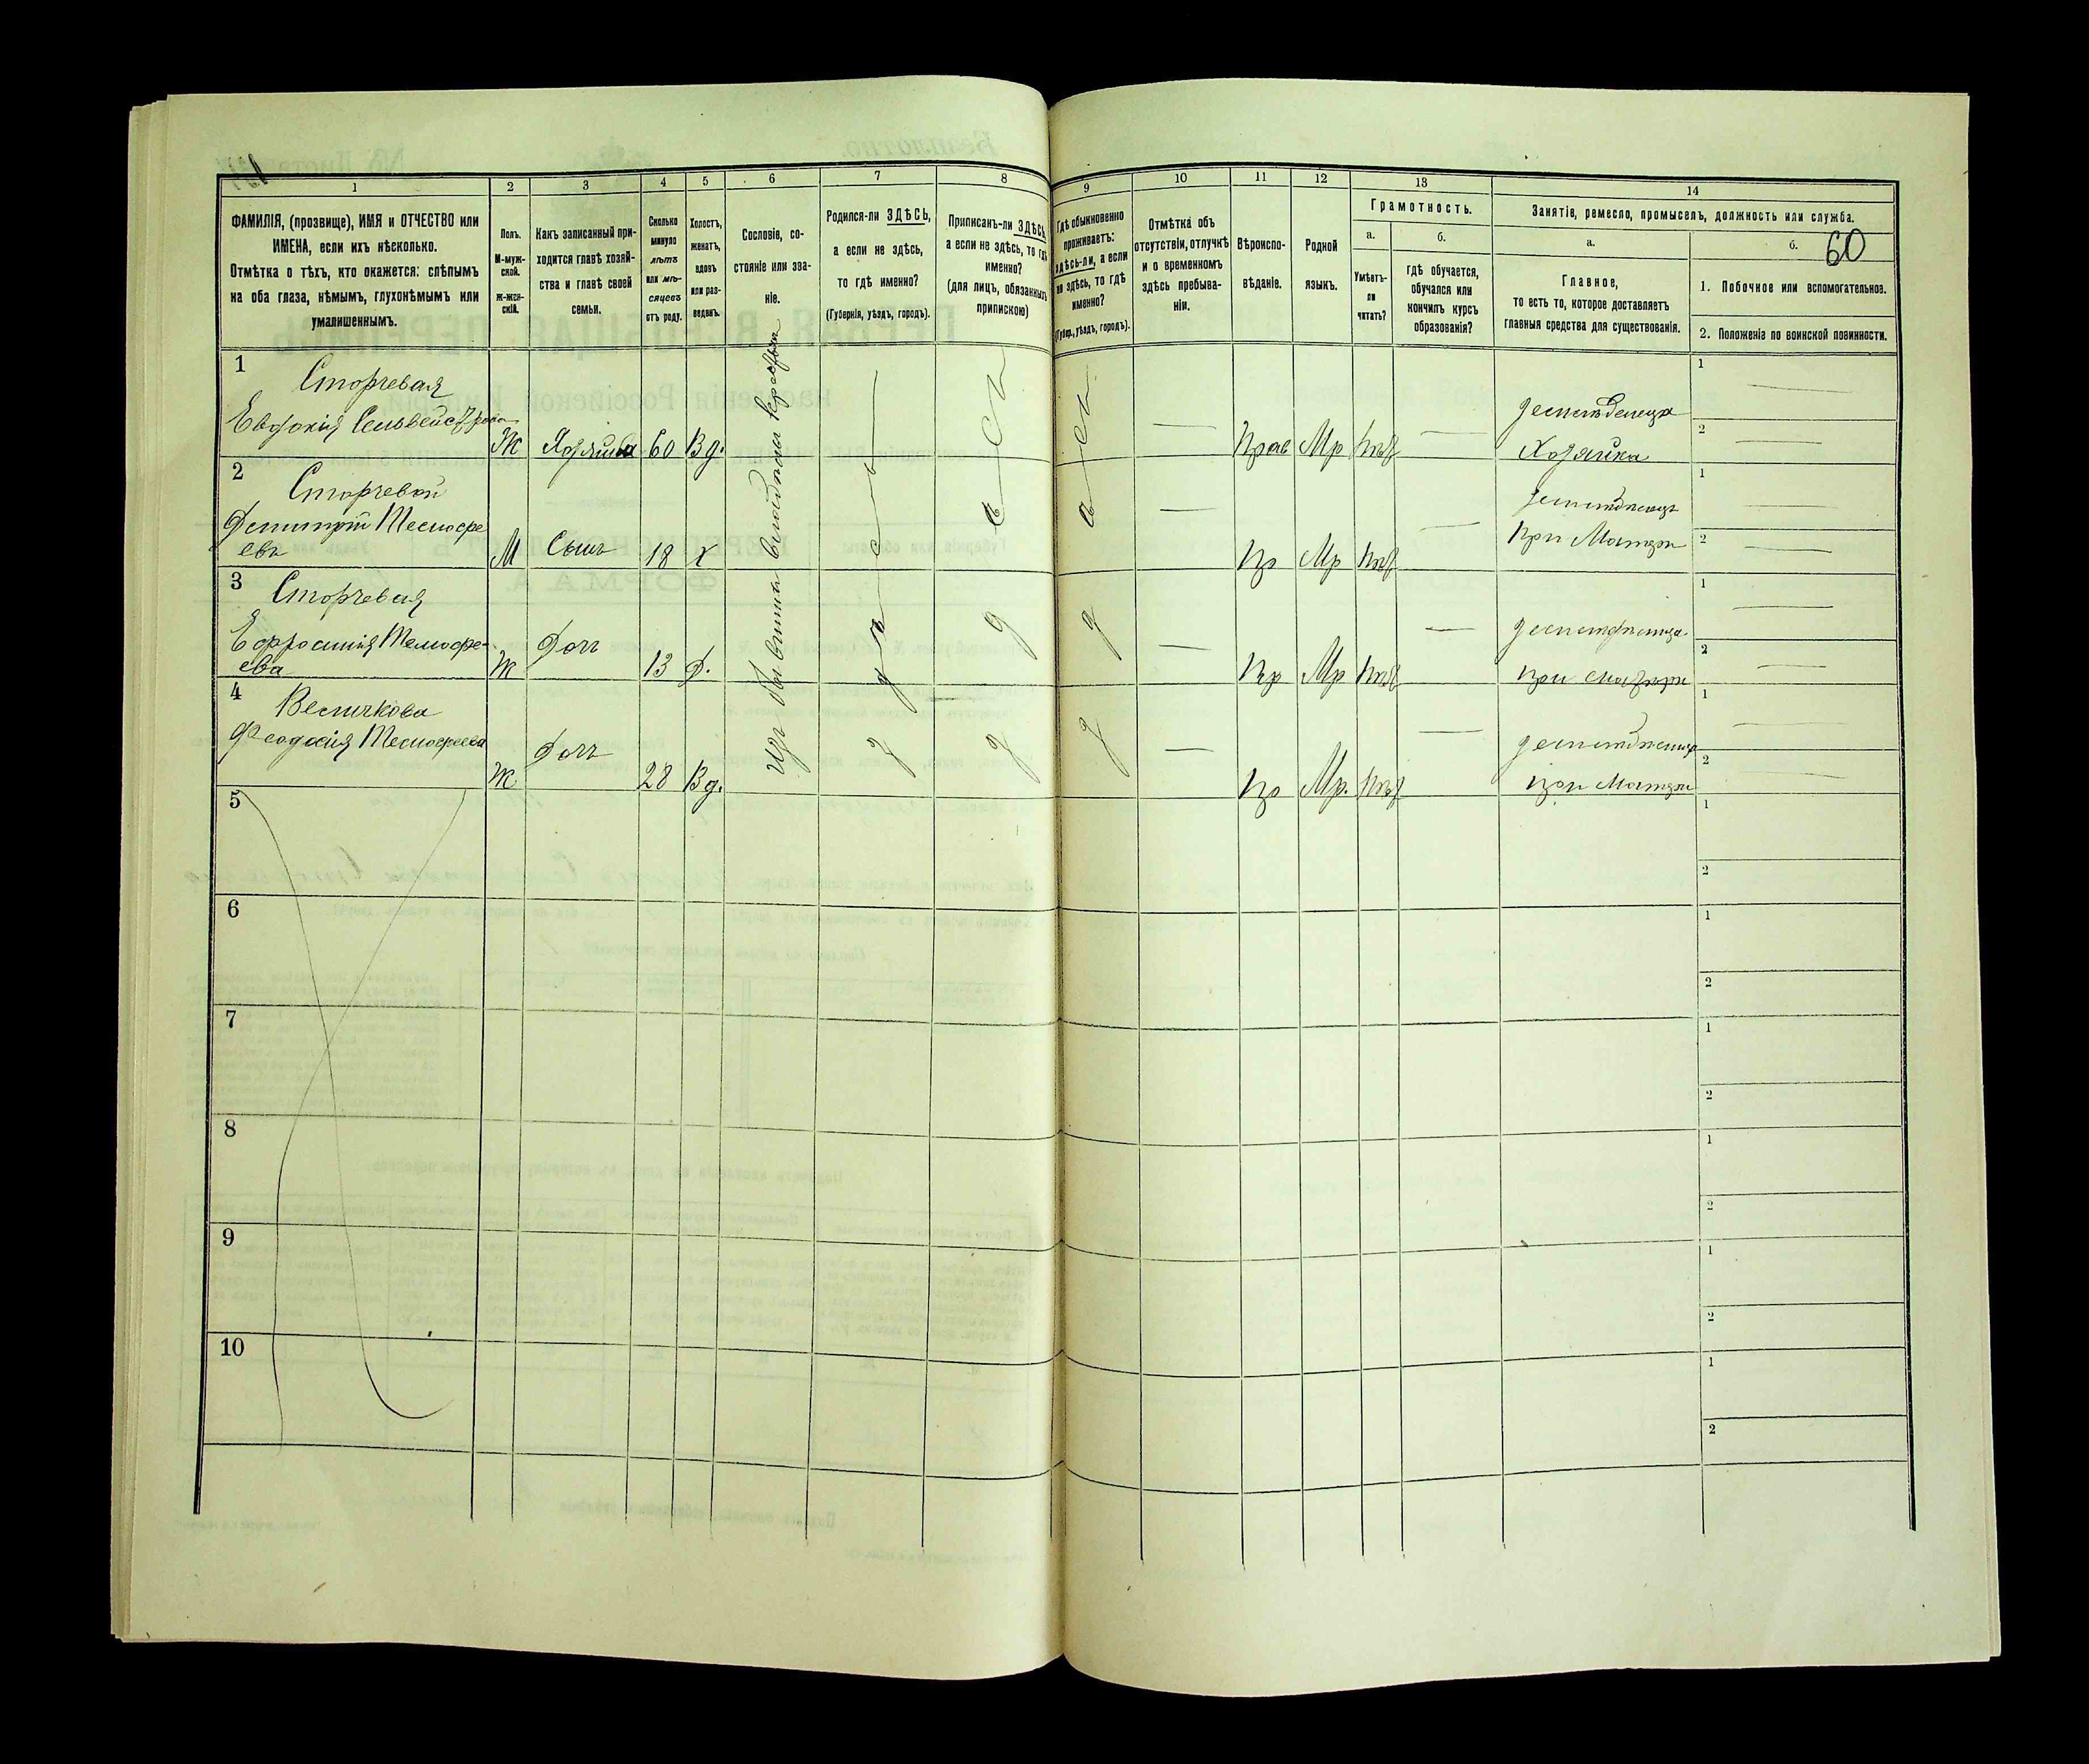 1
2
3
4
5
6
7
8
9
10
11
12
13
14
ФАМИЛІЯ, (прозвище), ИМЯ и ОТЧЕСТВО или
ИМЕНА, если ихъ нѣсколько.
Отмѣтка о тѣхъ, кто окажется: слѣпымъ
на оба глаза, нѣмымъ, глухонѣмымъ или
умалишеннымъ.
Полъ.
М-муж-
ской.
Ж-жен-
скій.
Какъ записанный при-
ходится главѣ хозяй-
ства и главѣ своей
семьи.
Сколько
минуло
лѣтъ
или мѣ-
сяцевъ
отъ роду.
Холостъ,
женатъ,
вдовъ
или раз-
веденъ.
Сословіе, со-
стояніе или зва-
ніе.
Родился-ли ЗДѢСЬ,
а если не здѣсь,
то гдѣ именно?
(Губернія, уѣздъ, городъ).
Приписанъ-ли ЗДѢСЬ
а если не здѣсь, то гдѣ
именно?
(для лицъ, обязанныхъ
припискою)
Гдѣ обыкновенно
проживаетъ:
здѣсь-ли, а если
не здѣсь, то гдѣ
именно?
(Губер., уѣздъ, городъ).
Отмѣтка объ
отсутствіи, отлучкѣ
и о временномъ
здѣсь пребыва-
ніи.
Вѣроиспо-
вѣданіе.
Родной
языкъ.
Грамотность.
а.
Умѣетъ-
ли
читать?
б.
гдѣ обучается,
обучался или
кончилъ курсъ
образованія?
Занятіе, ремесло, промыселъ, должность или служба.
а.
Главное,
то есть то, которое доставляетъ
главныя средства для существованія.
б.
60
1. Побочное или вспомогательное.
2. Положеніе по воинской повинности.
1
Сторчевая
Евдокія
Ж Хозяйка 60 Вд.
Прав Мр нѣт
Хозяйка
1
2
2
Сторчевой
М Сынъ 18 Х
Пр Мр нѣт
При Матери
1
2
3
Сторчевая
Ефросинія Тимофе-
ева
Ж Дочь 13 Д.
Пр Мр нѣт
при матери
1
2
4
Величкова
Феодосія Тимофеева
Ж Дочь 28 Вд.
Пр Мр. нѣт
при Матери
1
2
Изъ бывших
5
1
2
6
1
2
7
1
2
8
1
2
9
1
2
10
1
2